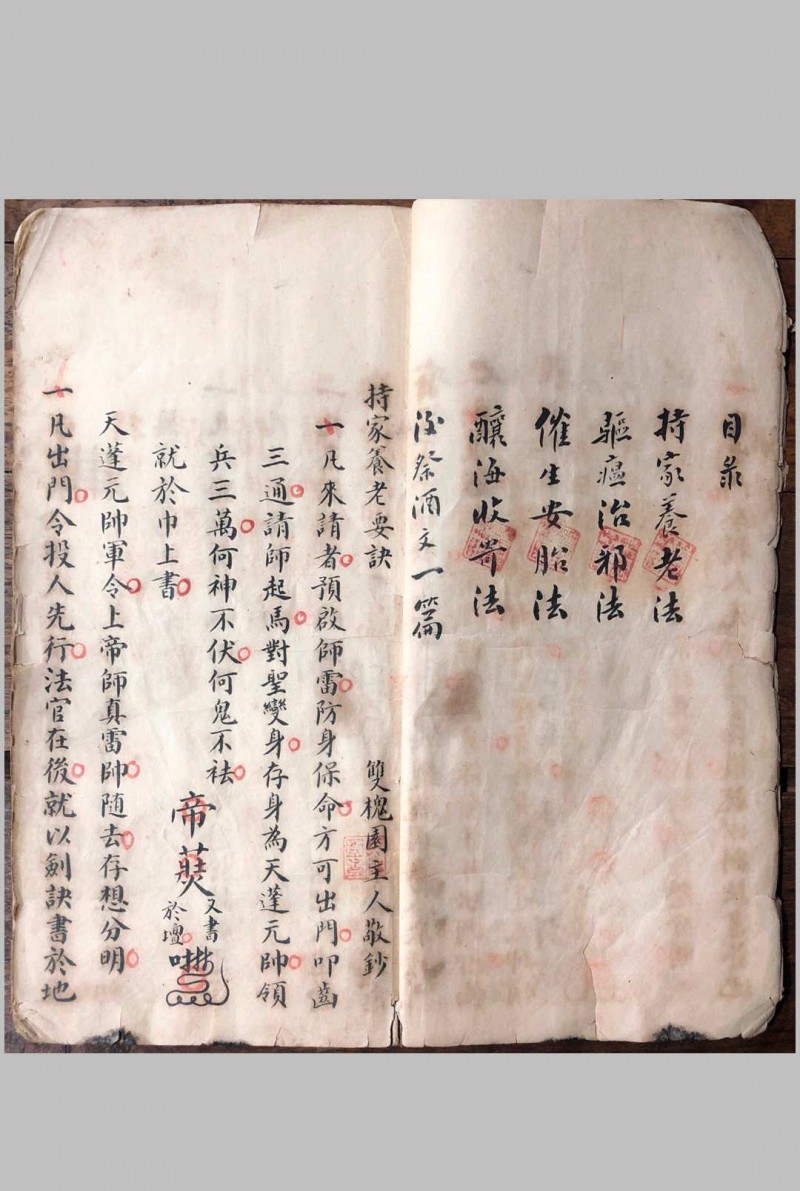 目录
持家養老法
驅瘟治邪法
催生安胎法
釀海收㝍法
後祭酒文一篇
持家養老要訣 雙槐園主人敬鈔
一凡來請者預啟師雷防身保命方可出門叩齒
三通請師起馬對聖變身存身為天蓬元帥領
兵三萬何神不伏何鬼不祛
就於巾上書
帝
又書
於壇
天蓬元帥軍令上帝師真雷帥随去存想分明
一凡出門令投人先行法官在後就以劍訣書於地